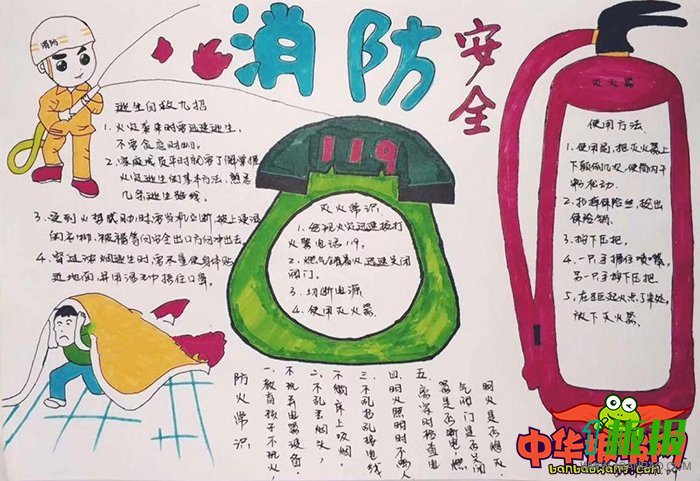 消防安全
消防
逃生自救九招
1. 火灾袭来时需迅速逃生，
不要贪恋财物。
2. 家庭成员平时就要了解掌握
火灾逃生的基本方法，熟悉
几条逃生路线。
3. 受到火势威胁时要当机立断，披上浸湿
的衣物、被褥等向安全出口方向冲出去。
4. 穿过浓烟逃生时要尽量使身体贴
近地面，并用湿毛巾捂住口鼻。
119
灭火常识
1. 发现火灾迅速拨打
火警电话119。
2. 燃气罐着火迅速关闭
阀门。
3. 切断电源
4. 使用灭火器
灭火器
使用方法
1. 使用前，把灭火器上
下颠倒几次，使筒内干
粉松动。
2. 拆掉保险丝，拔出
保险销。
3. 按下压把，
4. 一只手握住喷嘴，
另一只手按下压把。
5. 在距起火点了来处，
放下灭火器。
防火常识
一、教育孩子不玩火，
不玩弄电器设备，
二、不乱丢烟头，
不躺床上吸烟，
三、不乱拉乱接电线
四、明火照明时不离人
五、离家时检查电
器是否断电，燃
气阀门是否关闭
明火是否熄灭，
中华
报
banbaowang.com